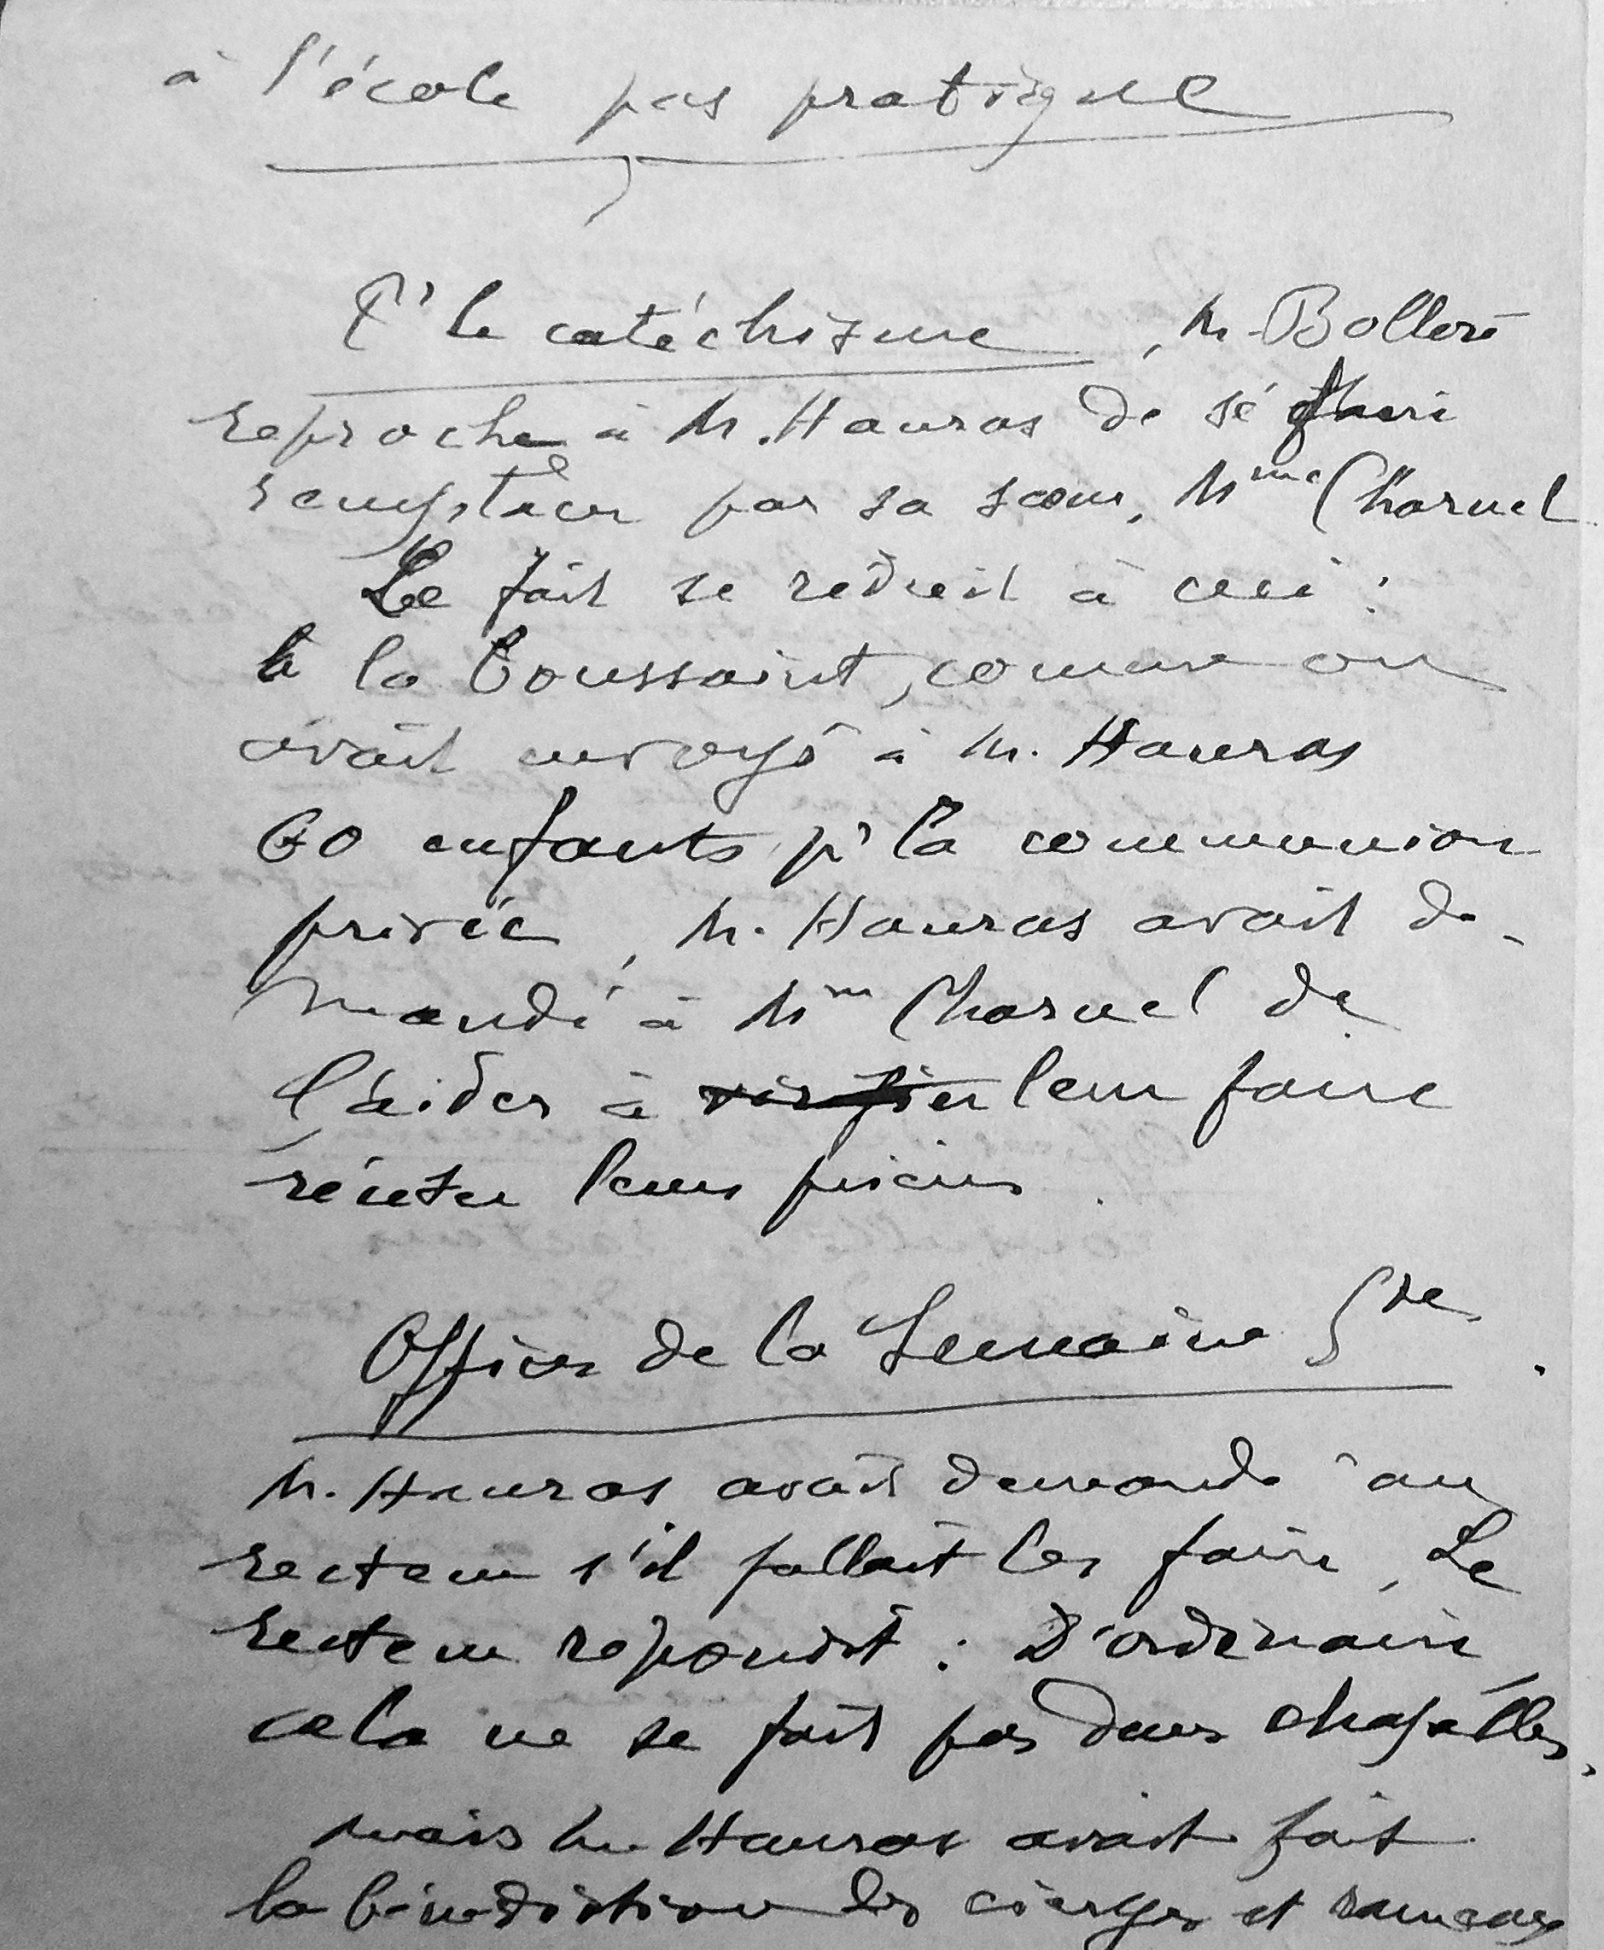 à l'école pas pratique
Pr le catéchisme, M. Bolloré
reproche à M. Hauras de s'être
remplacer par sa sœur, Mme Charuel
Le fait se réduit à ceci :
à la Toussaint, comme on
avait envoyé à M. Hauras
60 enfants pr la communion
privée, M. Hauras avait de-
mandé à Mm Charuel de
l'aider à leur faire
réciter leurs prières.
Offices de la Semaine Ste.
M. Hauras avait demandé au
recteur s'il fallait les faire, Le
recteur répondit : D'ordinaire,
cela ne se fait pas dans chapelles.
mais M. Hauras avait fait
la bénédiction des cierges et rameaux